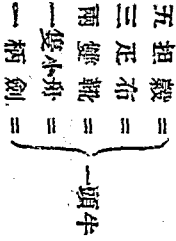 五担穀 =
三疋布 =
兩雙靴 =
一隻小舟 =
一柄劍 =
一頭牛